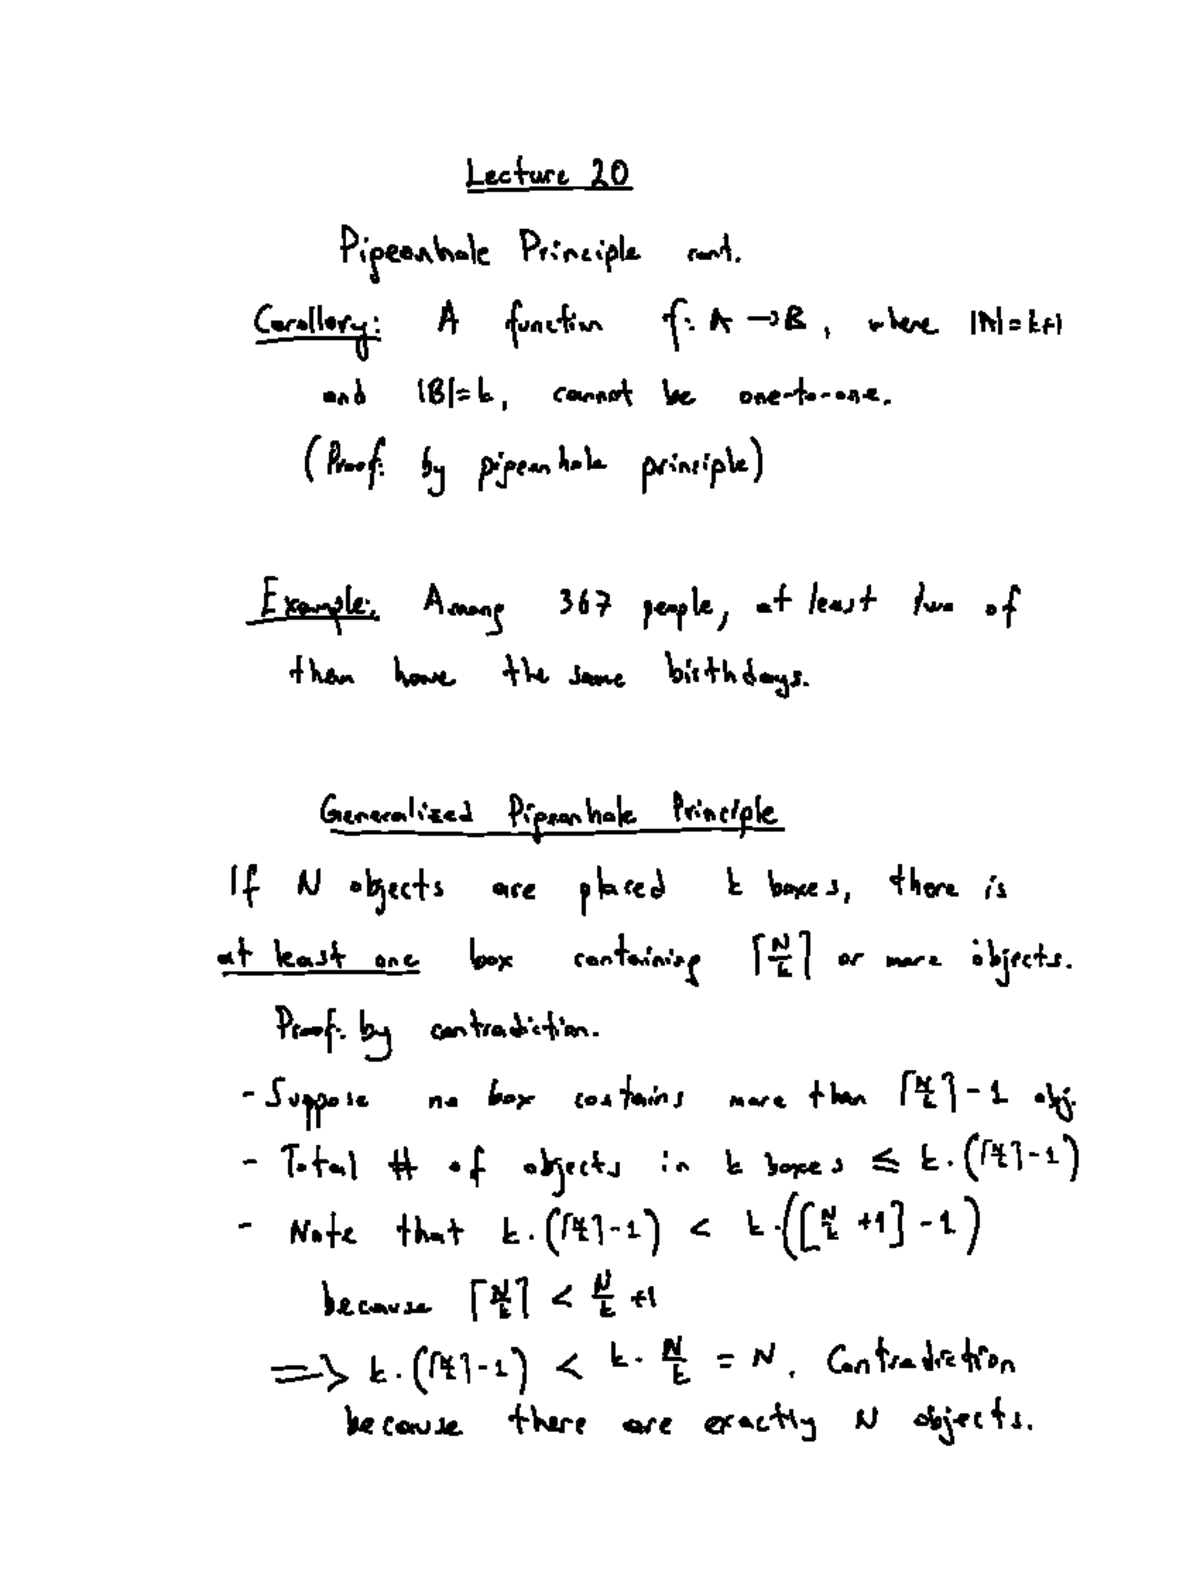 Lecture 20
Pigeonhole Principle cont.
Corollary: A function f: A → B, where |A| = k+1
and |B| = k, cannot be one-to-one.
(Proof: by pigeonhole principle)
Example: Among 367 people, at least two of
them have the same birthdays.
Generalized Pigeonhole Principle
If N objects are placed k boxes, there is
at least one box containing ⌈N/k⌉ or more objects.
Proof: by contradiction.
- Suppose no box contains more than ⌈N/k⌉ - 1 obj.
- Total # of objects in k boxes ≤ k · (⌈N/k⌉ - 1)
- Note that k · (⌈N/k⌉ - 1) < k · ([N/k + 1] - 1)
because ⌈N/k⌉ < N/k + 1
⟹ k · (⌈N/k⌉ - 1) < k · N/k = N. Contradiction
because there are exactly N objects.